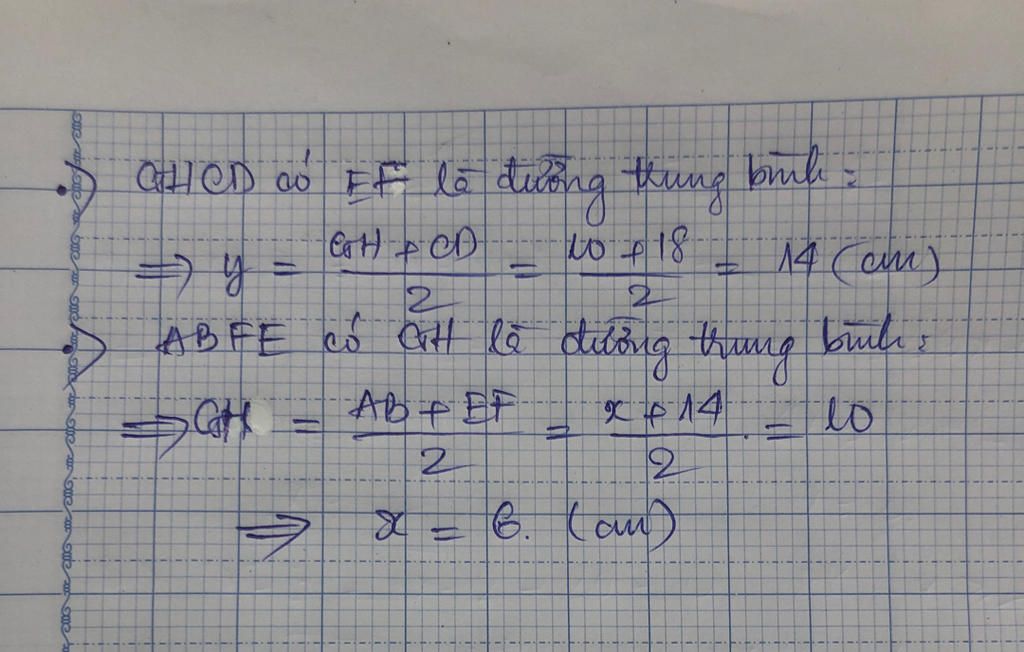 GHCD có EF là đường trung bình:
⇒ y = (GH + CD)/2 = (10 + 18)/2 = 14 (cm)
ABFE có GH là đường trung bình:
⇒ GH = (AB + EF)/2 = (x + 14)/2 = 10
⇒ x = 6. (cm)